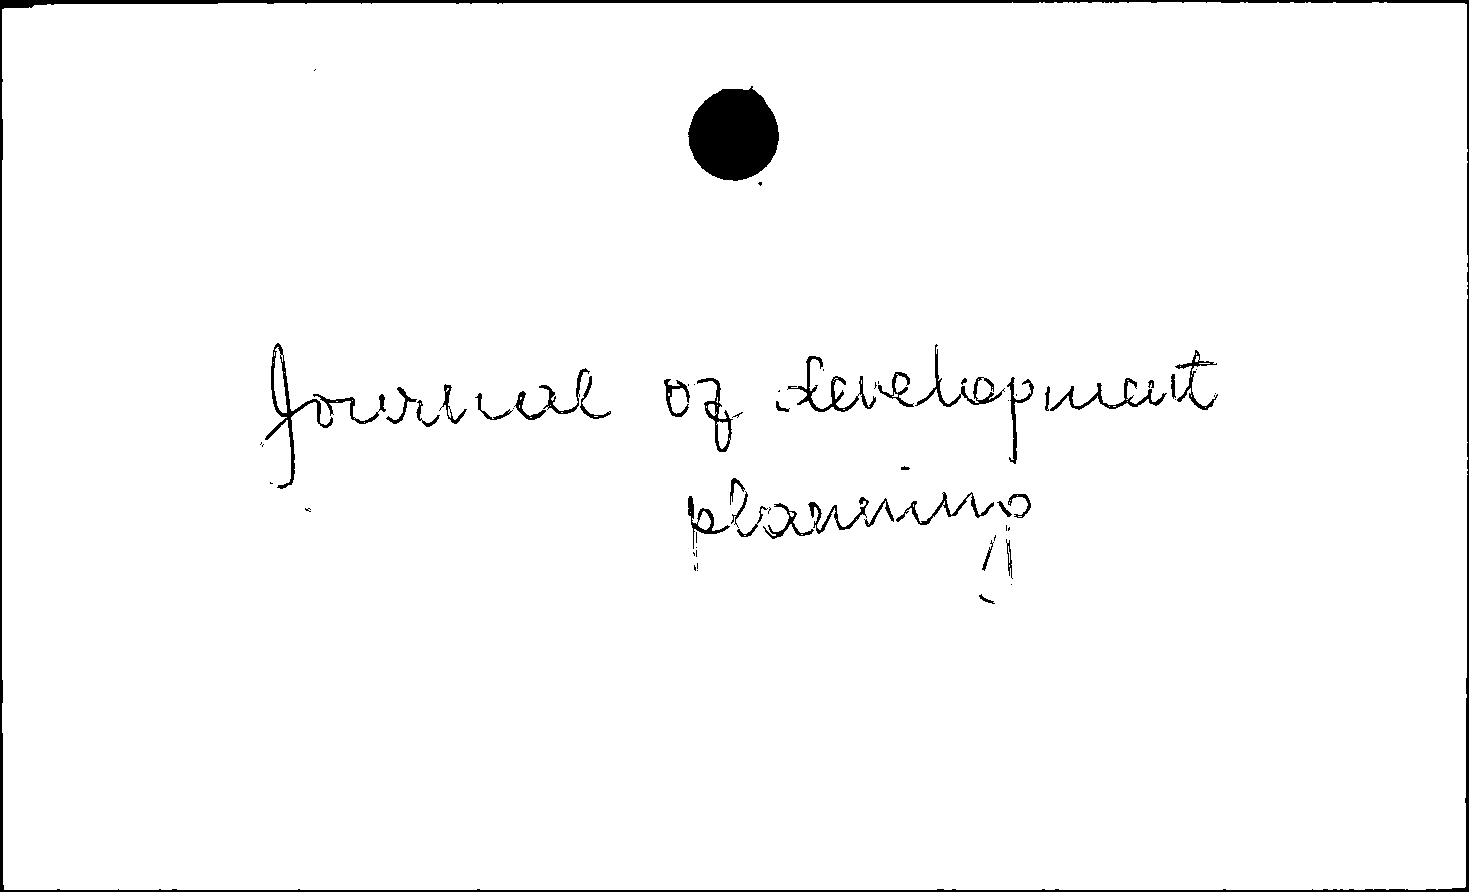 Journal of development
planning